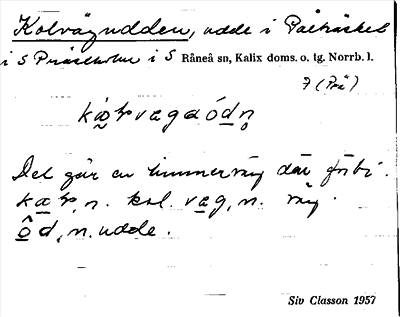 Kolvägudden, udde i Påträsket
i S Prästholm i S Råneå sn, Kalix doms. o. tg. Norrb. l.
7 (Prä)
Det går en timmerväg där förbi.
n. kol. væg, n. väg.
ôd, n. udde.
Siv Classon 1957